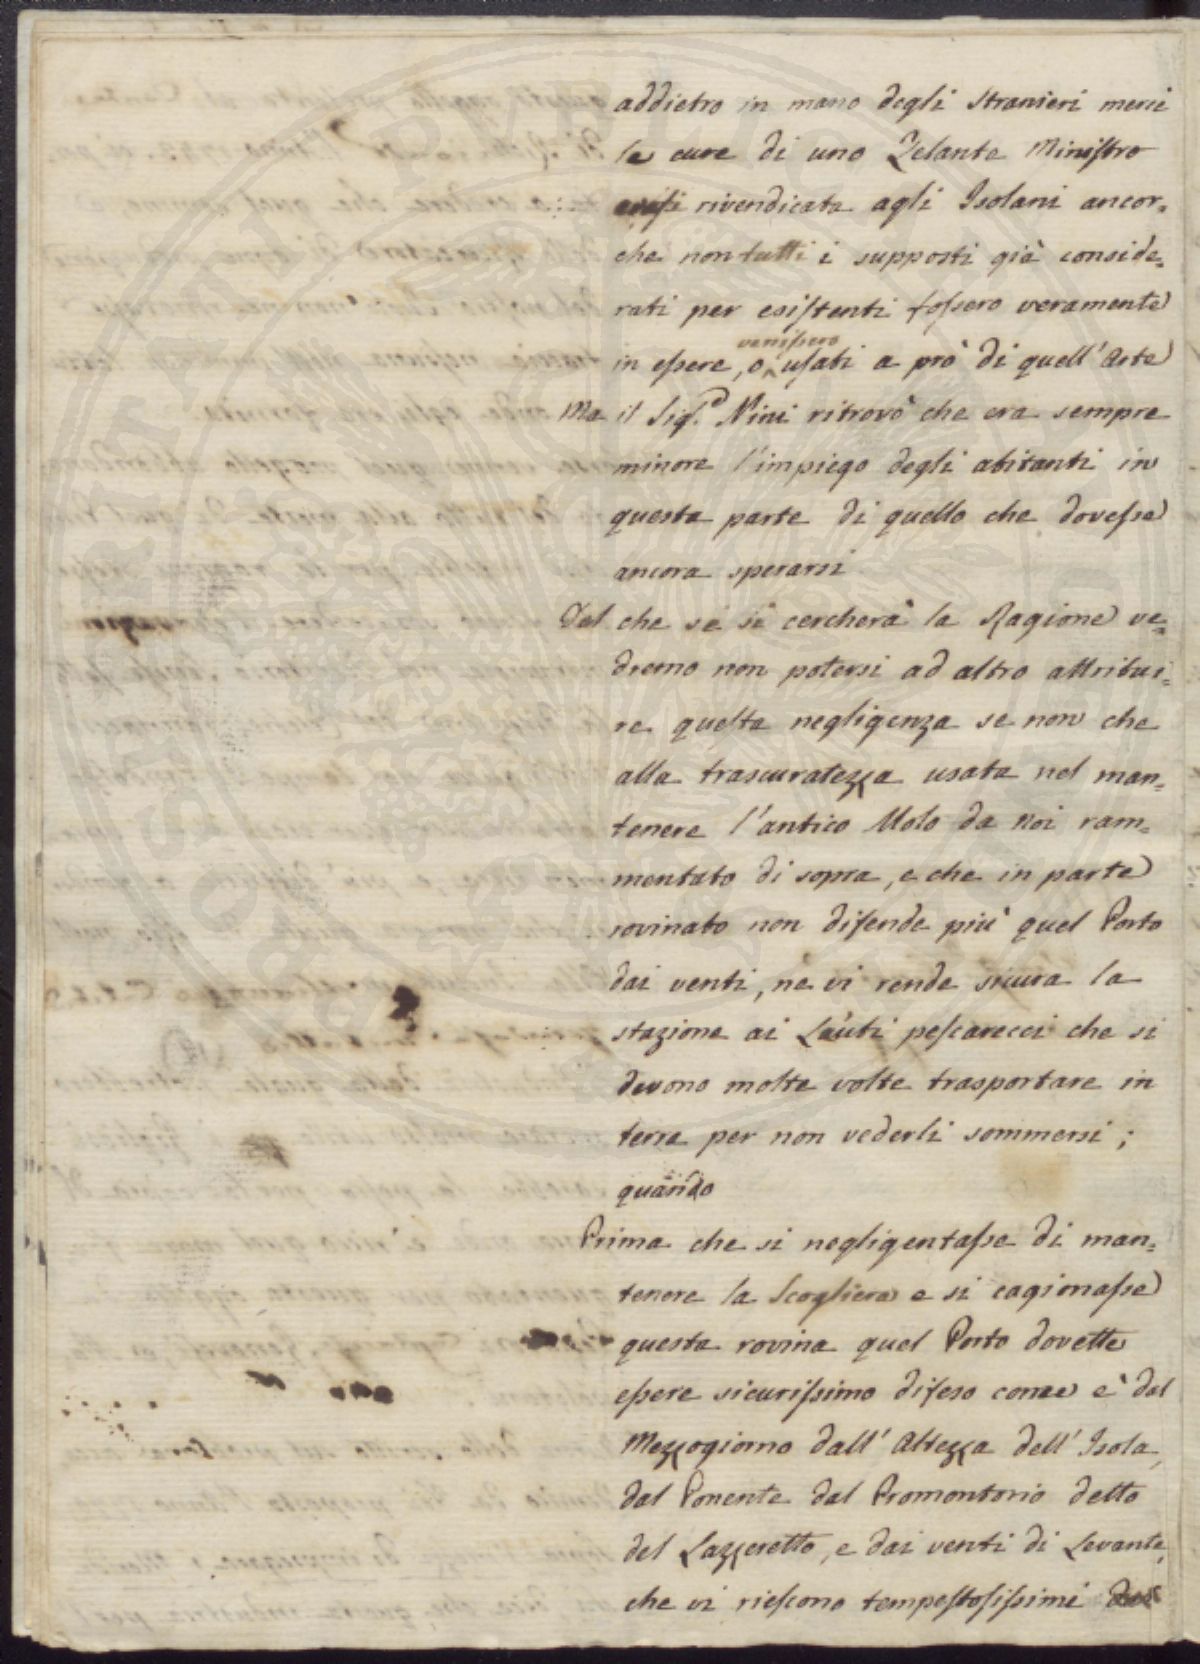 addietro in mano degli stranieri mercè
le cure di uno Zelante Ministro
ersi rivendicata agli Isolani ancor=
che non tutti i supposti già conside=
rati per esistenti fossero veramente
in essere, o venissero usati a prò di quell'arte
Ma il Sig.e Nini ritrovò che era sempre
minore l'impiego degli abitanti in
questa parte di quello che dovesse
ancora sperarsi
Del che se si cercherà la Ragione ve=
dremo non potersi ad altro attribui=
re questa negligenza se non che
alla trascuratezza usata nel man=
tenere l'antico Molo da noi ram=
mentato di sopra, e che in parte
rovinato non difende più quel Porto
dai venti, ne vi rende sicura la
stazione ai Lauti pescarecci che si
devono molte volte trasportare in
terra per non vederli sommersi;
quando
Prima che si negligentasse di man=
tenere la Scogliera e si cagionasse
questa rovina quel Porto dovette
essere sicurissimo difeso come è dal
Mezzogiorno dall'altezza dell'Isola,
dal Ponente dal Promontorio detto
del Lazzeretto, e dai venti di Levante,
che vi riescono tempestosissimi